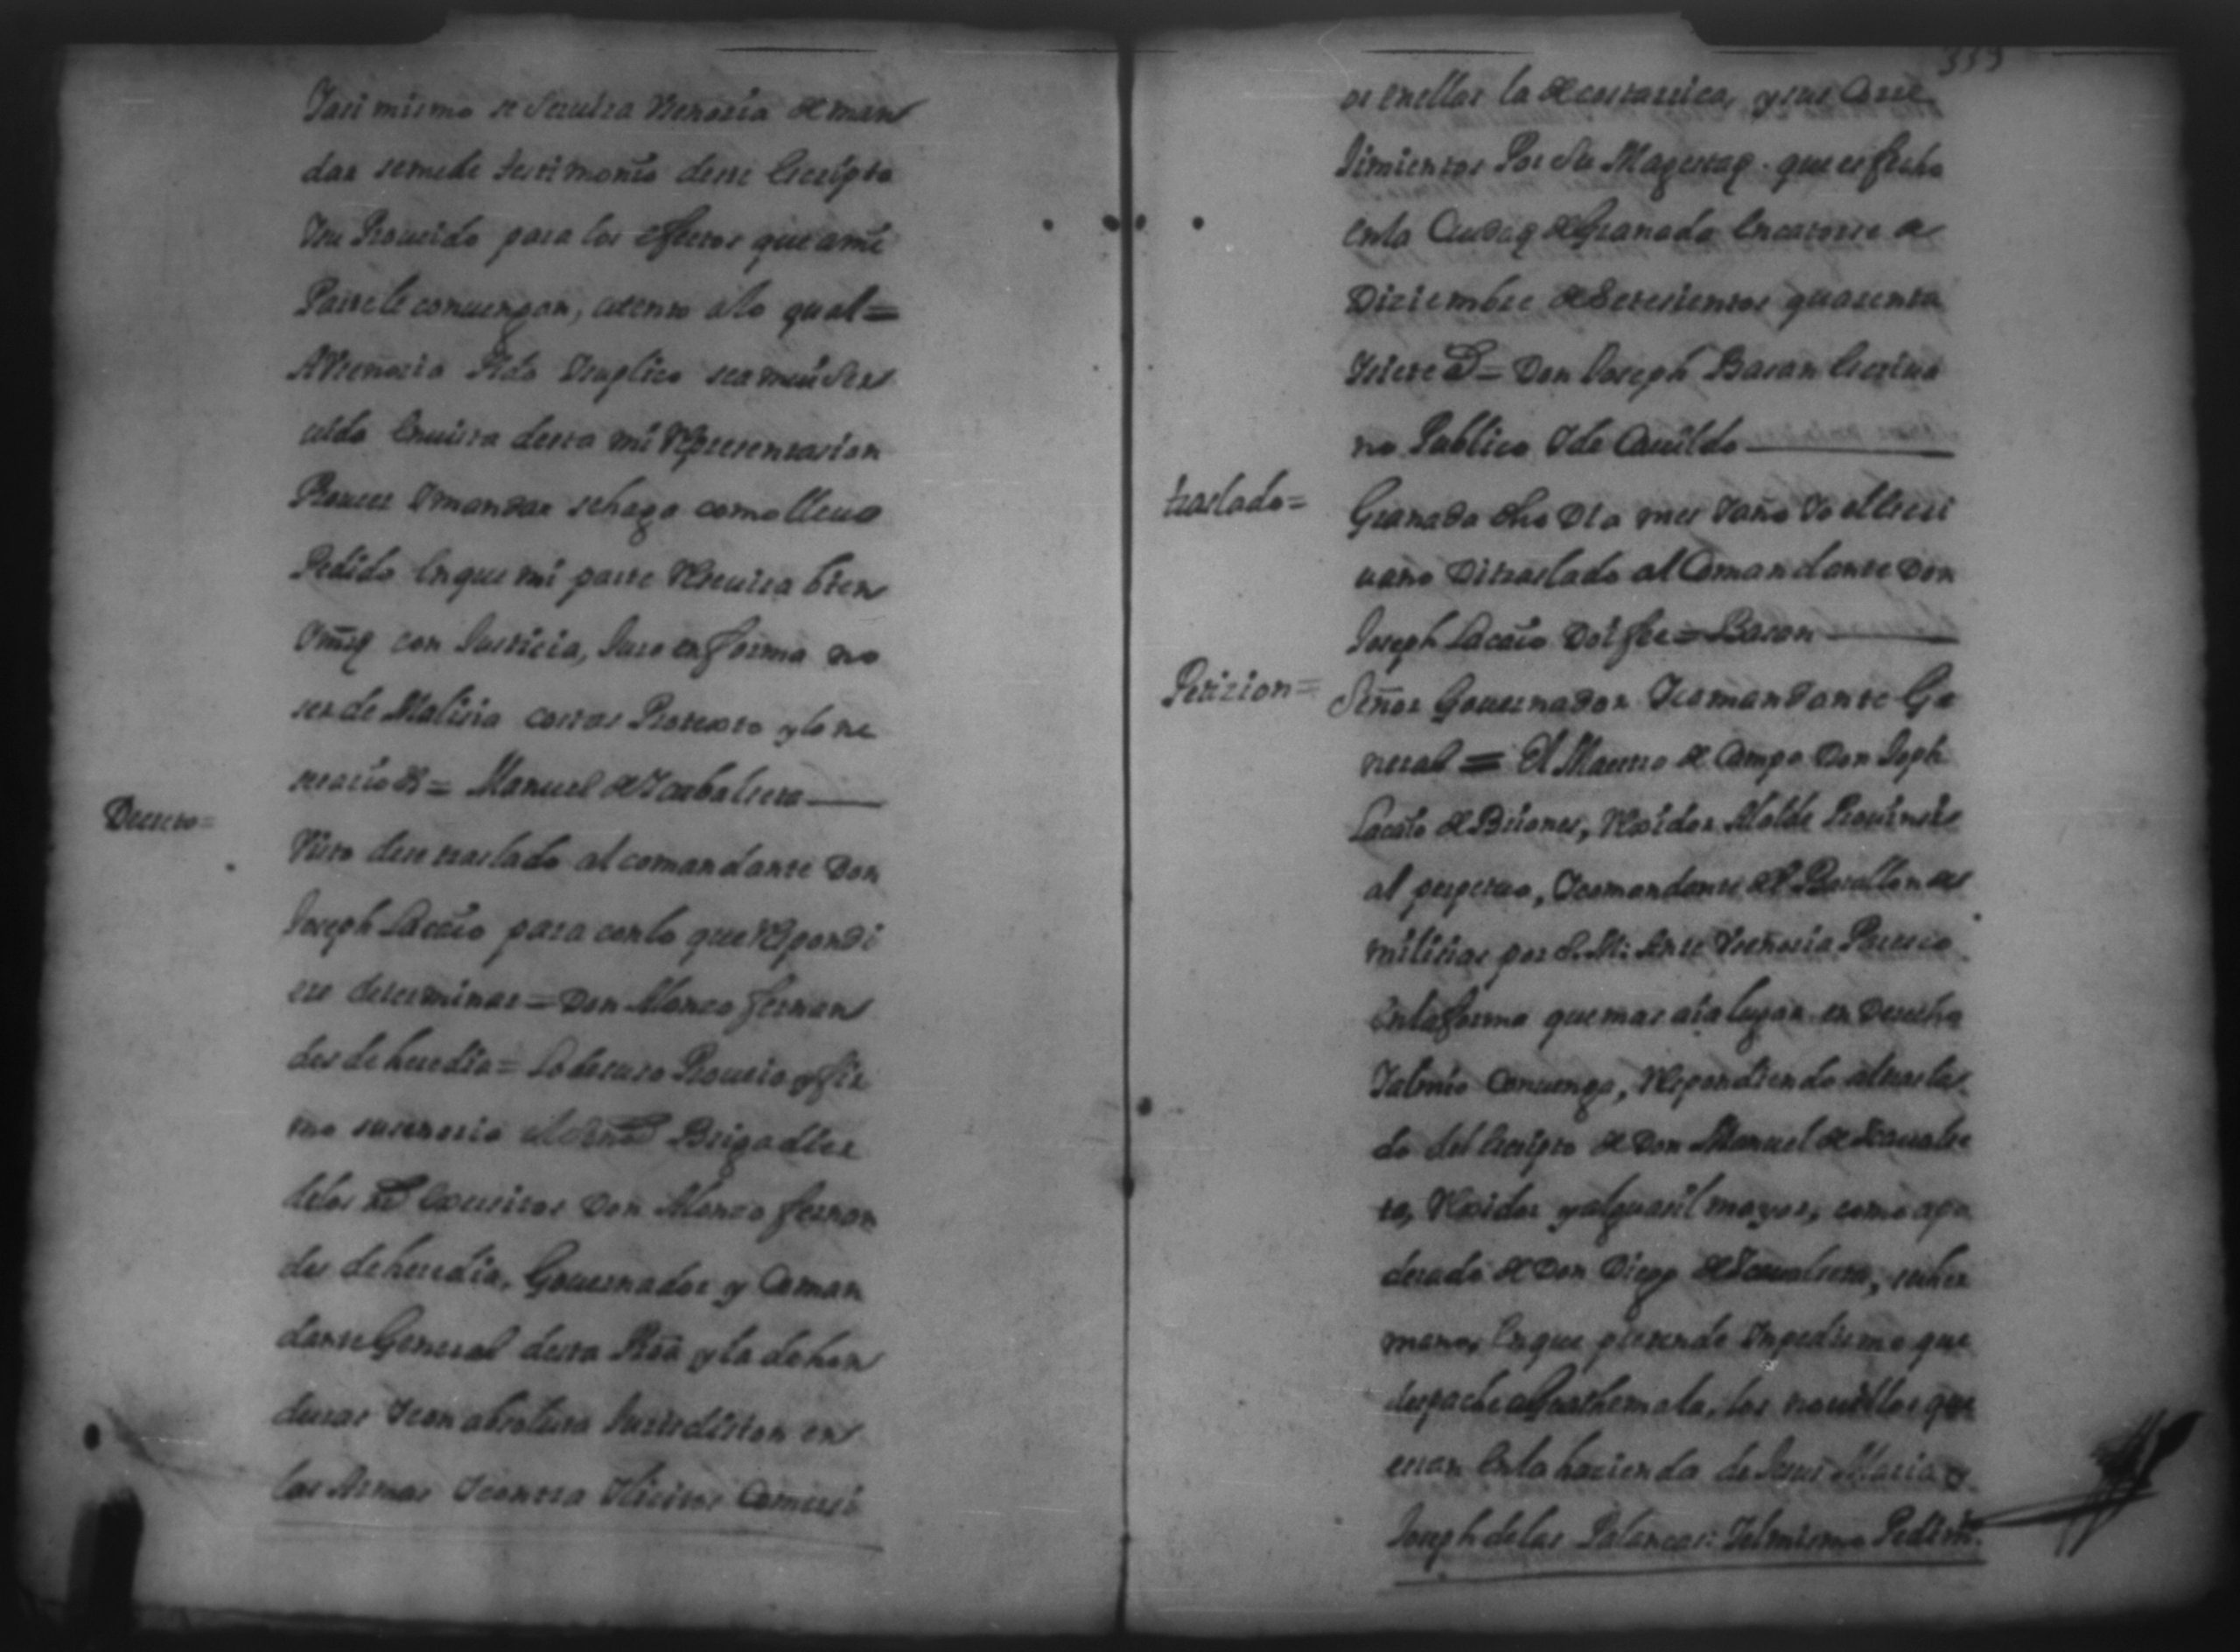 Yasi mismo se servira Vsenoria de man
dar se me de testimonio deste escripto
Y su Proueido para los efectos que a mi
Parte le conuengan, atento a lo qual =
A Vsenoria Pido Y suplico sea mui Ser
uido en uista desta mi Representasion
Proueer Y mandar se haga como lleuo
Pedido en que mi parte Resiuira bien
Y mrd con Justicia, Juro en forma no
ser de Malisia costas Protexto y lo ne
sesario &= Manuel de Scabalsera
Decreto=
Visto dese traslado al comandante Don
Joseph Lacaio para con lo que Respondi
ese determinar = Don Alonso fernan
des de heredia = Lo de suso Proueio y fir
mo su senoria el Señor Brigadier
de los Rs Exercitos Don Alonso fernan
des de heredia, Gouernador y Coman
dante General desta Proa y la de hon
duras Y con absoluta Jurisdision en
las Armas Y contra Ylicitos Comersi
333
os en ellas la de costarrica, y sus Corre
Jimientos Por Su Magestad. que es fecho
en la Ciudad de Granada en catorse de
Diziembre de Setesientos quarenta
Y siete Ds = Don Joseph Basan escriua
no Publico Y de Cauildo
traslado=
Granada dho Dia mes Y año Yo el escri
uano Di traslado al Comandante Don
Joseph Lacaio Doi fee = Basan
Petizion=
Señor Gouernador Y comandante Ge
neral = El Maestro de Campo Don Joph
Lacaio de Briones, Rexidor Alcalde Prouinsi
al perpetuo, Y comandante del Batallon de
milisias por S. M. Ante Vsenoria Paresco
en la forma que mas aia lugar en Derecho
Y al mio Conuenga, Respondiendo al trasla
do del escripto de Don Manuel de Scaualse
ta, Rexidor y alguasil mayor, como apo
derado de Don Diego de Scaualseta, su her
mano, en que pretende Ynpedirme que
despache a Guathemala, los nouillos que
estan en la hacienda de Jesus Maria y
Joseph de las Palancas: Y el mismo Pedim.